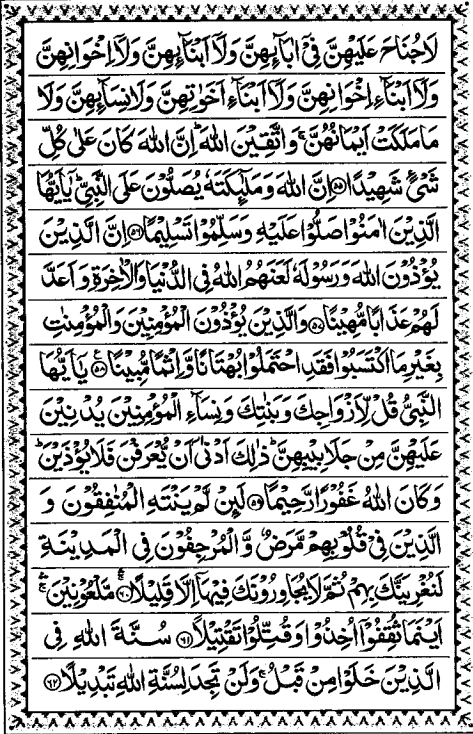 لَاجُنَاحَ عَلَيْهِنَّ فِيْٓ اٰبَآىِٕهِنَّ وَلَآ اَبْنَآىِٕهِنَّ وَلَآ اِخْوَانِهِنَّ
وَلَآ اَبْنَآءِ اِخْوَانِهِنَّ وَلَآ اَبْنَآءِ اَخَوٰتِهِنَّ وَلَا نِسَآىِٕهِنَّ وَلَا
مَا مَلَكَتْ اَيْمَانُهُنَّ ۚ وَاتَّقِيْنَ اللّٰهَ ؕ اِنَّ اللّٰهَ كَانَ عَلٰى كُلِّ
شَيْءٍ شَهِيْدًا ﴿۵۵﴾ اِنَّ اللّٰهَ وَمَلٰٓىِٕكَتَهٗ يُصَلُّوْنَ عَلَى النَّبِيِّ ؕ يٰٓاَيُّهَا
الَّذِيْنَ اٰمَنُوْا صَلُّوْا عَلَيْهِ وَسَلِّمُوْا تَسْلِيْمًا ﴿۵۶﴾ اِنَّ الَّذِيْنَ
يُؤْذُوْنَ اللّٰهَ وَرَسُوْلَهٗ لَعَنَهُمُ اللّٰهُ فِي الدُّنْيَا وَالْاٰخِرَةِ وَاَعَدَّ
لَهُمْ عَذَابًا مُّهِيْنًا ﴿۵۷﴾ وَالَّذِيْنَ يُؤْذُوْنَ الْمُؤْمِنِيْنَ وَالْمُؤْمِنٰتِ
بِغَيْرِ مَا اكْتَسَبُوْا فَقَدِ احْتَمَلُوْا بُهْتَانًا وَّاِثْمًا مُّبِيْنًا ﴿۵۸﴾ يٰٓاَيُّهَا
النَّبِيُّ قُلْ لِّاَزْوَاجِكَ وَبَنٰتِكَ وَنِسَآءِ الْمُؤْمِنِيْنَ يُدْنِيْنَ
عَلَيْهِنَّ مِنْ جَلَابِيْبِهِنَّ ؕ ذٰلِكَ اَدْنٰٓى اَنْ يُّعْرَفْنَ فَلَا يُؤْذَيْنَ ؕ
وَكَانَ اللّٰهُ غَفُوْرًا رَّحِيْمًا ﴿۵۹﴾ لَىِٕنْ لَّمْ يَنْتَهِ الْمُنٰفِقُوْنَ وَ
الَّذِيْنَ فِيْ قُلُوْبِهِمْ مَّرَضٌ وَّالْمُرْجِفُوْنَ فِي الْمَدِيْنَةِ
لَنُغْرِيَنَّكَ بِهِمْ ثُمَّ لَا يُجَاوِرُوْنَكَ فِيْهَآ اِلَّا قَلِيْلًا ﴿۶۰﴾ مَّلْعُوْنِيْنَ ۛۚ
اَيْنَمَا ثُقِفُوْٓا اُخِذُوْا وَقُتِّلُوْا تَقْتِيْلًا ﴿۶۱﴾ سُنَّةَ اللّٰهِ فِي
الَّذِيْنَ خَلَوْا مِنْ قَبْلُ ۚ وَلَنْ تَجِدَ لِسُنَّةِ اللّٰهِ تَبْدِيْلًا ﴿۶۲﴾